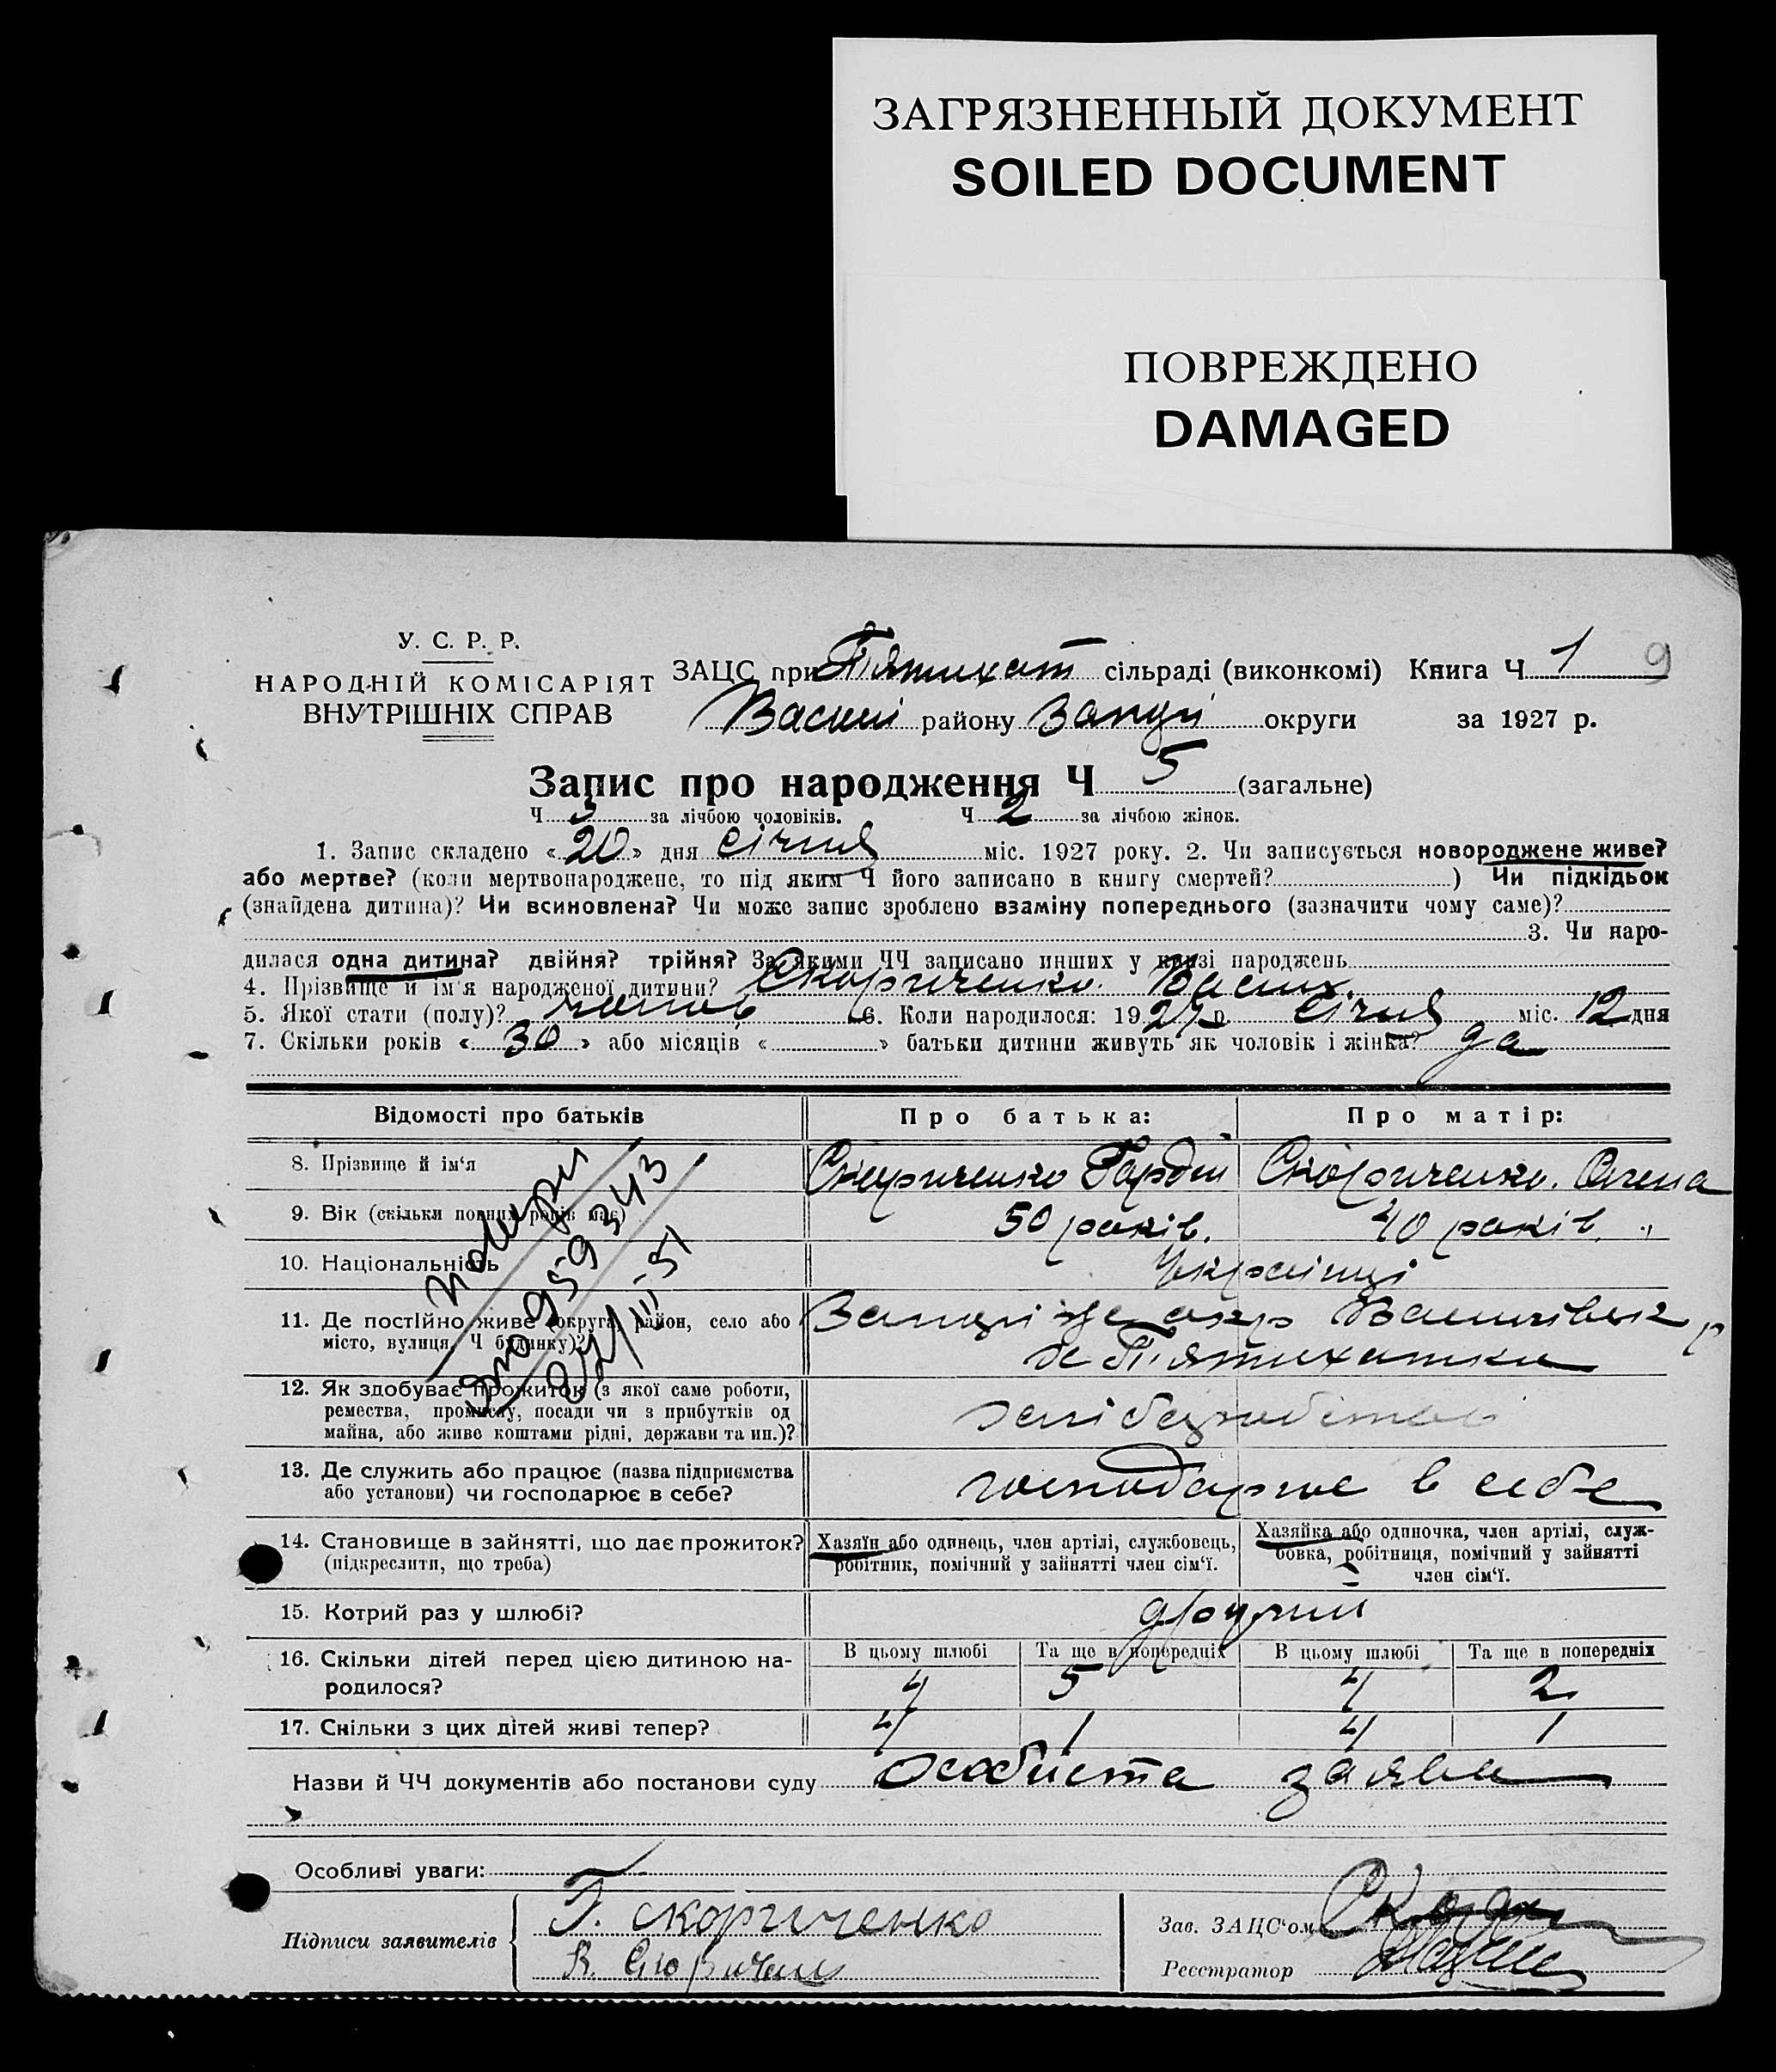 ЗАГРЯЗНЕННЫЙ ДОКУМЕНТ
SOILED DOCUMENT
ПОВРЕЖДЕНО
DAMAGED
У. С. Р. Р.
НАРОДНІЙ КОМІСАРІЯТ
ВНУТРІШНІХ СПРАВ
ЗАЦС при П'ятихат сільраді (виконкомі) Книга Ч 1 9
Васил району Запорі округи за 1927 р.
Запис про народження Ч 5 (загальне)
Ч 3 за лічбою чоловіків. Ч 2 за лічбою жінок.
1. Запис складено « 20 » дня січня міс. 1927 року. 2. Чи записується новороджене живе?
або мертве? (коли мертвонароджене, то під яким Ч його записано в книгу смертей? ) Чи підкідьок
(знайдена дитина)? Чи всиновлена? Чи може запис зроблено взаміну попереднього (зазначити чому саме)?
3. Чи наро-
дилася одна дитина? двійня? трійня? За якими ЧЧ записано инших у книзі народжень
4. Прізвище й ім'я народженої дитини? Скориченко Васил
5. Якої стати (полу)? 6. Коли народилося: 1927 р. січня міс. 12 дня
7. Скільки років « 30 » або місяців « » батьки дитини живуть як чоловік і жінка? да
Відомості про батьків Про батька: Про матір:
8. Прізвище й ім'я Скориченко Гордій Скориченко Олена
9. Вік (скільки повних років має) 50 років. 40 років.
10. Національність Українці
11. Де постійно живе (округа, район, село або
місто, вулиця, Ч будинку)?
с П'ятихатки
12. Як здобуває прожиток (з якої саме роботи,
ремества, промислу, посади чи з прибутків од
майна, або живе коштами рідні, держави та ин.)?
13. Де служить або працює (назва підприємства
або установи) чи господарює в себе? господарює в себе
14. Становище в зайнятті, що дає прожиток?
(підкреслити, що треба)
Хазяїн або одинець, член артілі, службовець,
робітник, помічний у зайнятті член сім'ї.
Хазяйка або одиночка, член артілі, служ-
бовка, робітниця, помічний у зайнятті
член сім'ї.
15. Котрий раз у шлюбі? другий
16. Скільки дітей перед цією дитиною на-
родилося?
В цьому шлюбі Та ще в попередніх В цьому шлюбі Та ще в попередніх
4 5 4 2
17. Скільки з цих дітей живі тепер? 4 1 4 1
Назви й ЧЧ документів або постанови суду особиста заява
Особливі уваги:
Підписи заявителів Г. скориченко
Зав. ЗАЦС'ом
Реєстратор